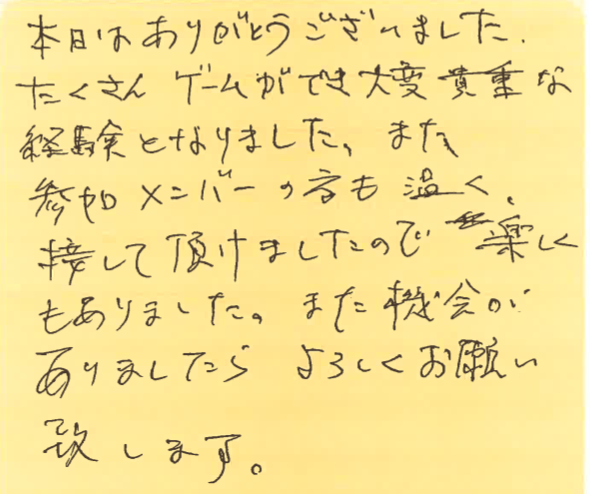 本日はありがとうございました.
たくさん ゲームができ大変貴重な
経験となりました、また、
参加メンバーの方も温く、
接して頂けましたので 楽しく
もありました。また機会が
ありましたら よろしくお願い
致します。